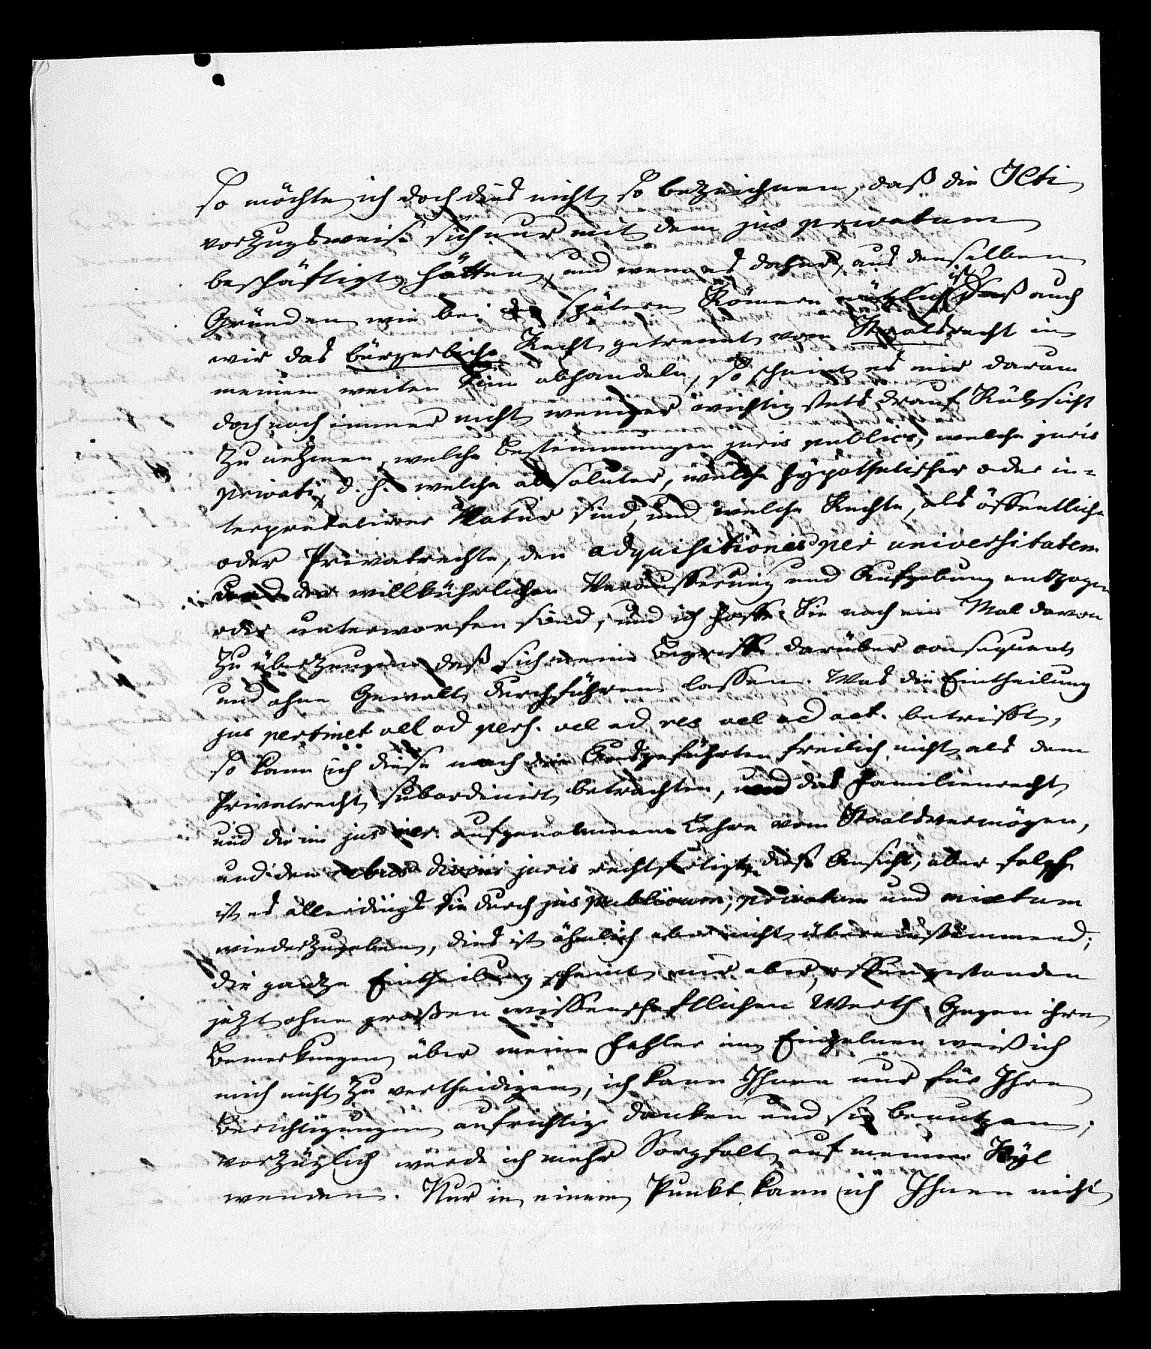 so möchte ich doch dies nicht so bezeichnen, daß die Jcti
vorzugsweise sich nur mit dem jus privatum
beschäftigt hätten, und wenn es daher, aus denselben
Gründen wie bei den spätern Römern nützlich ist, daß auch
wir das bürgerliche Recht getrennt vom Staatsrecht in
meinem weiten Sinn abhandeln, so scheint es mir darum
doch noch immer nicht weniger wichtig stets darauf Rücksicht
zu nehmen, welche Bestimmungen juris publici, welche juris
privati, d. h. welche absoluter, welche hypothetischer oder in-
terpretativer Natur sind, und welche Rechte, als öffentliche
oder Privatrechte, den adquisitiones per universitatem
und der willkührlichen Veräusserung und Aufgebung entzogen
oder unterworfen sind, und ich hoffe Sie noch ein Mal davon
zu überzeugen daß sich meine Begriffe darüber consequent
und ohne Gewalt durchführen lassen. Was die Eintheilung
jus pertinet vel ad pers. vel ad res vel ad act. betrifft,
so kann ich diese nach dem Ausgeführten freilich nicht als dem
Privatrecht subordinirt betrachten, und das Familienrecht
und die in jus rer. aufgenommene Lehre vom Staatsvermögen,
und den rebus divini juris rechtfertigt diese Ansicht, aber falsch
ist es allerdings sie durch jus publicum, privatum und mixtum
wiederzugeben, dies ist ähnlich aber nicht übereinstimmend;
die ganze Eintheilung scheint mir aber, offen gestanden
jetzt ohne großen wissenschaftlichen Werth. Gegen ihre
Bemerkungen über meine Fehler im Einzelnen weiß ich
mich nicht zu vertheidigen, ich kann Ihnen nur für Ihre
Berichtigungen aufrichtig danken und sie benutzen,
vorzüglich werde ich mehr Sorgfalt auf meinen Styl
wenden. Nur in einem Punkt kann ich Ihnen nicht